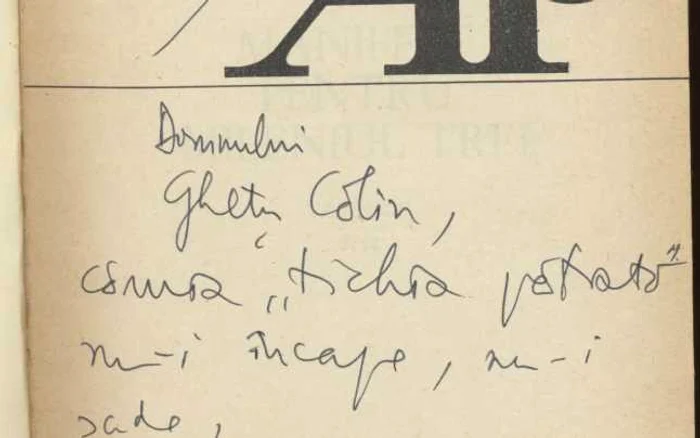 Ap
Domnului
Ghețu Colin,
căruia „tichia pătrată”
nu-i încape, nu-i
șade,